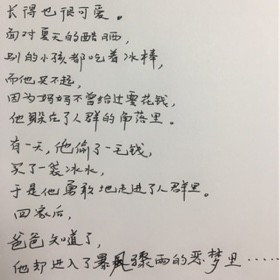 长得也很可爱。
面对夏天的酷晒,
别的小孩都吃着冰棒,
而他买不起,
因为妈妈不曾给过零花钱,
他躲在了人群的角落里。
有一天,他偷了一毛钱,
买了一袋冰水,
于是他勇敢地走进了人群里。
回家后,
爸爸知道了,
他却进入了暴风骤雨的恶梦里……